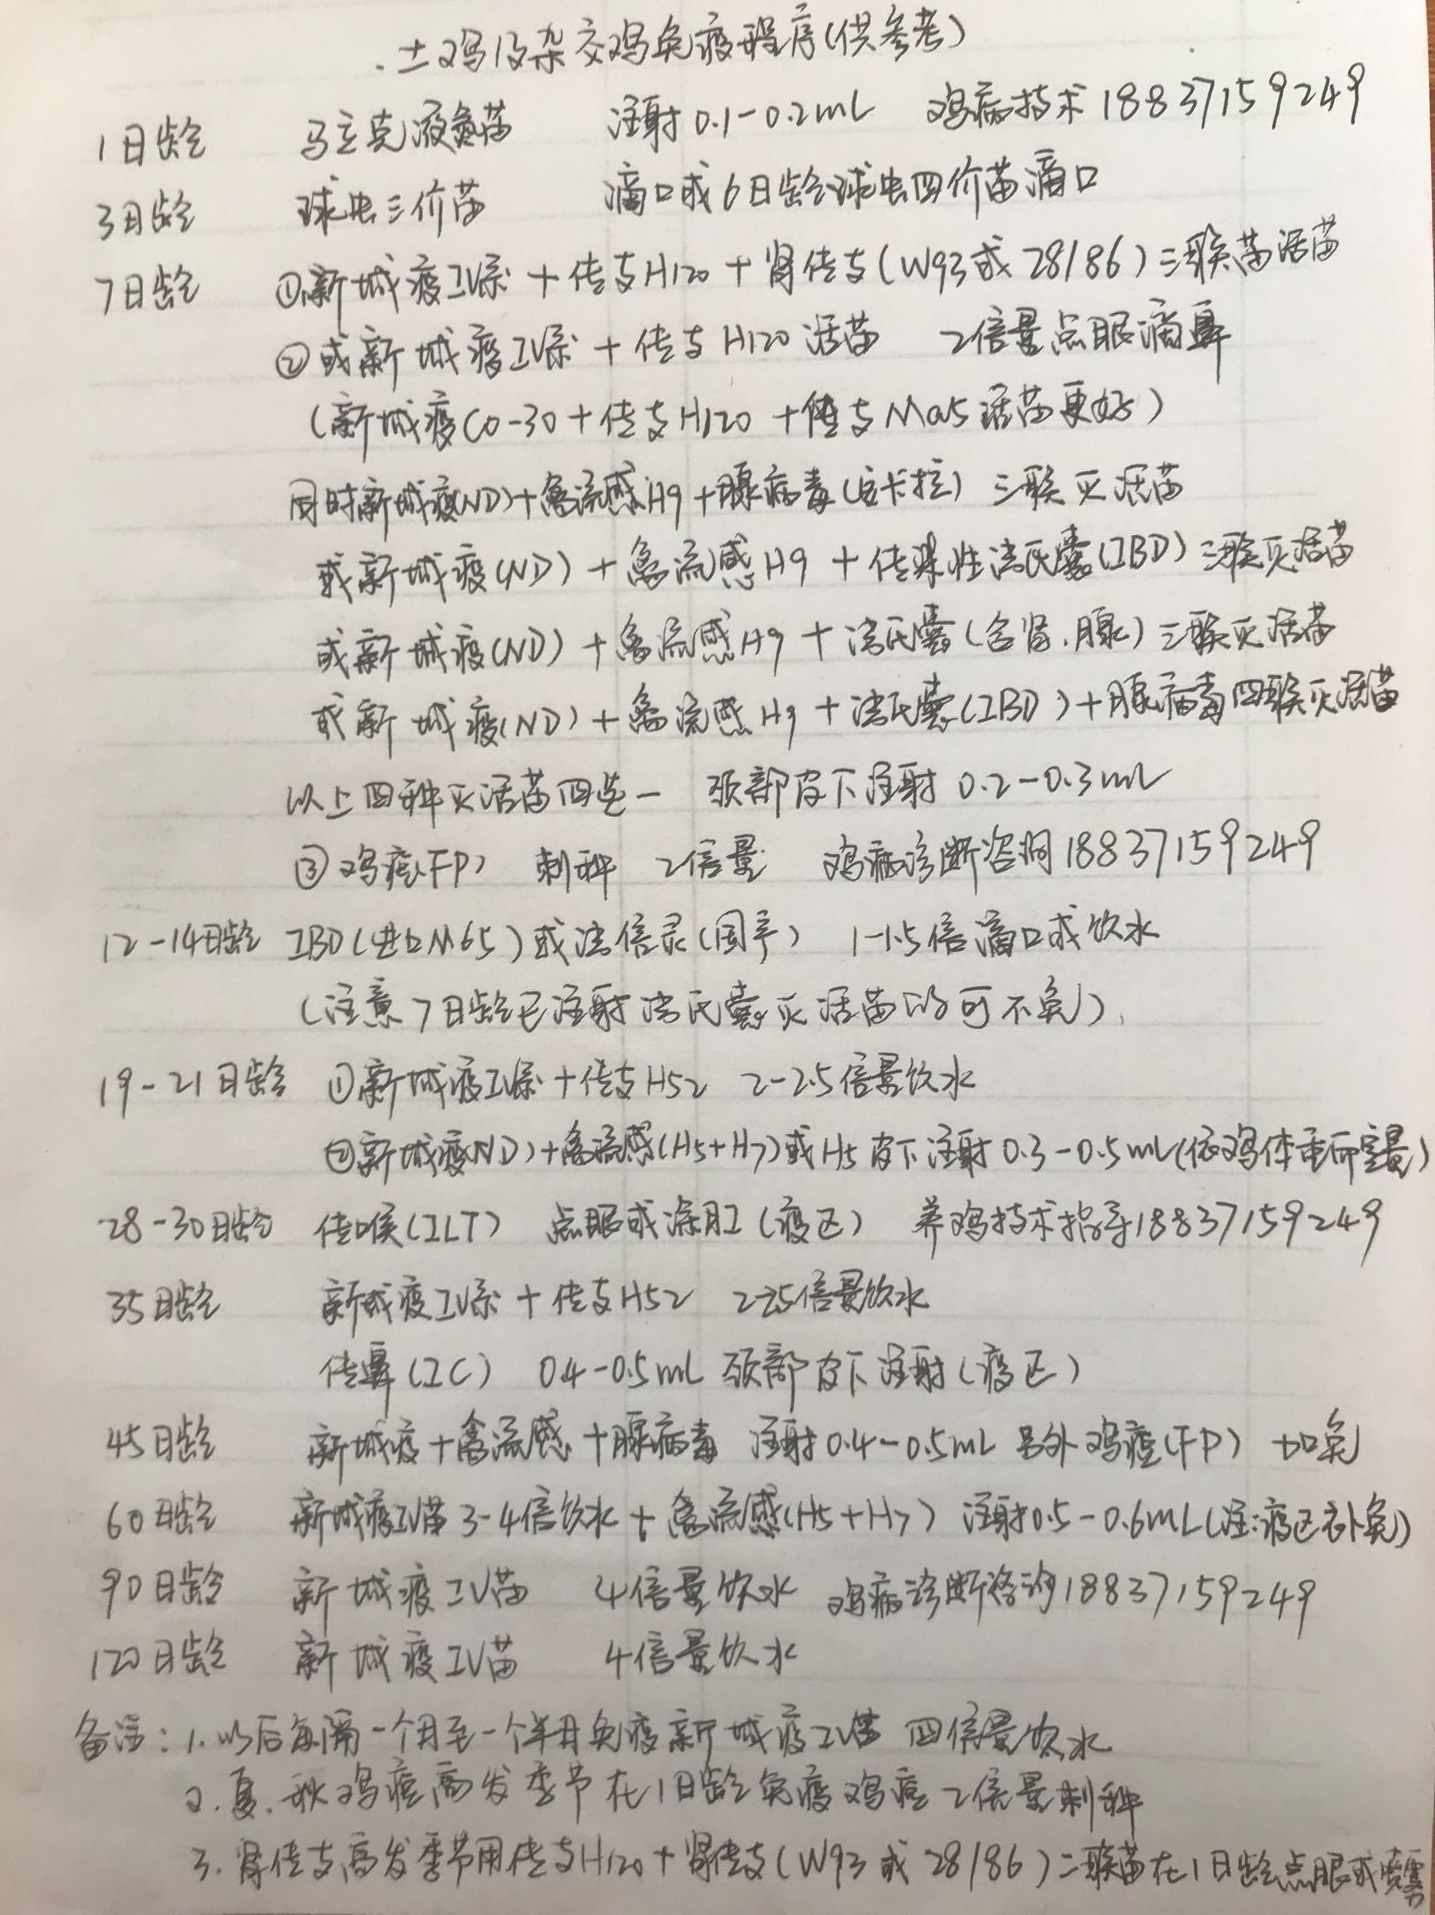 土鸡及杂交鸡免疫程序(供参考)
1日龄 马立克液氮苗 注射0.1-0.2mL 鸡病技术18837159249
3日龄 球虫三价苗 滴口或6日龄球虫四价苗滴口
7日龄 ①新城疫IV系+传支H120+肾传支(W93或28/86)三联苗活苗
②或新城疫IV系+传支H120活苗 2倍量点眼滴鼻
(新城疫C0-30+传支H120+传支Ma5活苗更好)
同时新城疫(ND)+禽流感H9+腺病毒(安卡拉) 三联灭活苗
或新城疫(ND)+禽流感H9+传染性法氏囊(IBD)三联灭活苗
或新城疫(ND)+禽流感H9+法氏囊(含肾.腺)三联灭活苗
或新城疫(ND)+禽流感H9+法氏囊(IBD)+腺病毒四联灭活苗
以上四种灭活苗四选一 颈部皮下注射0.2-0.3mL
③鸡痘(FP) 刺种 2倍量 鸡病诊断咨询18837159249
12-14日龄 IBD(进口M65)或法倍灵(国产) 1-1.5倍滴口或饮水
(注意7日龄已注射法氏囊灭活苗的可不免)
19-21日龄 ①新城疫IV系+传支H52 2-2.5倍量饮水
②新城疫(ND)+禽流感(H5+H7)或H5皮下注射0.3-0.5mL(依鸡体重而定量)
28-30日龄 传喉(ILT) 点眼或涂肛(疫区) 养鸡技术指导18837159249
35日龄 新城疫IV系+传支H52 2-2.5倍量饮水
传鼻(IC) 0.4-0.5mL 颈部皮下注射(疫区)
45日龄 新城疫+禽流感+腺病毒 注射0.4-0.5mL 另外鸡痘(FP) 加免
60日龄 新城疫IV苗3-4倍饮水+禽流感(H5+H7) 注射0.5-0.6mL(注:疫区补免)
90日龄 新城疫IV苗 4倍量饮水 鸡病诊断咨询18837159249
120日龄 新城疫IV苗 4倍量饮水
备注:1.以后每隔一个月至一个半月免疫新城疫IV苗 四倍量饮水
2.夏.秋鸡痘高发季节在1日龄免疫鸡痘2倍量刺种
3.肾传支高发季节用传支H120+肾传支(W93或28/86)二联苗在1日龄点眼或喷雾